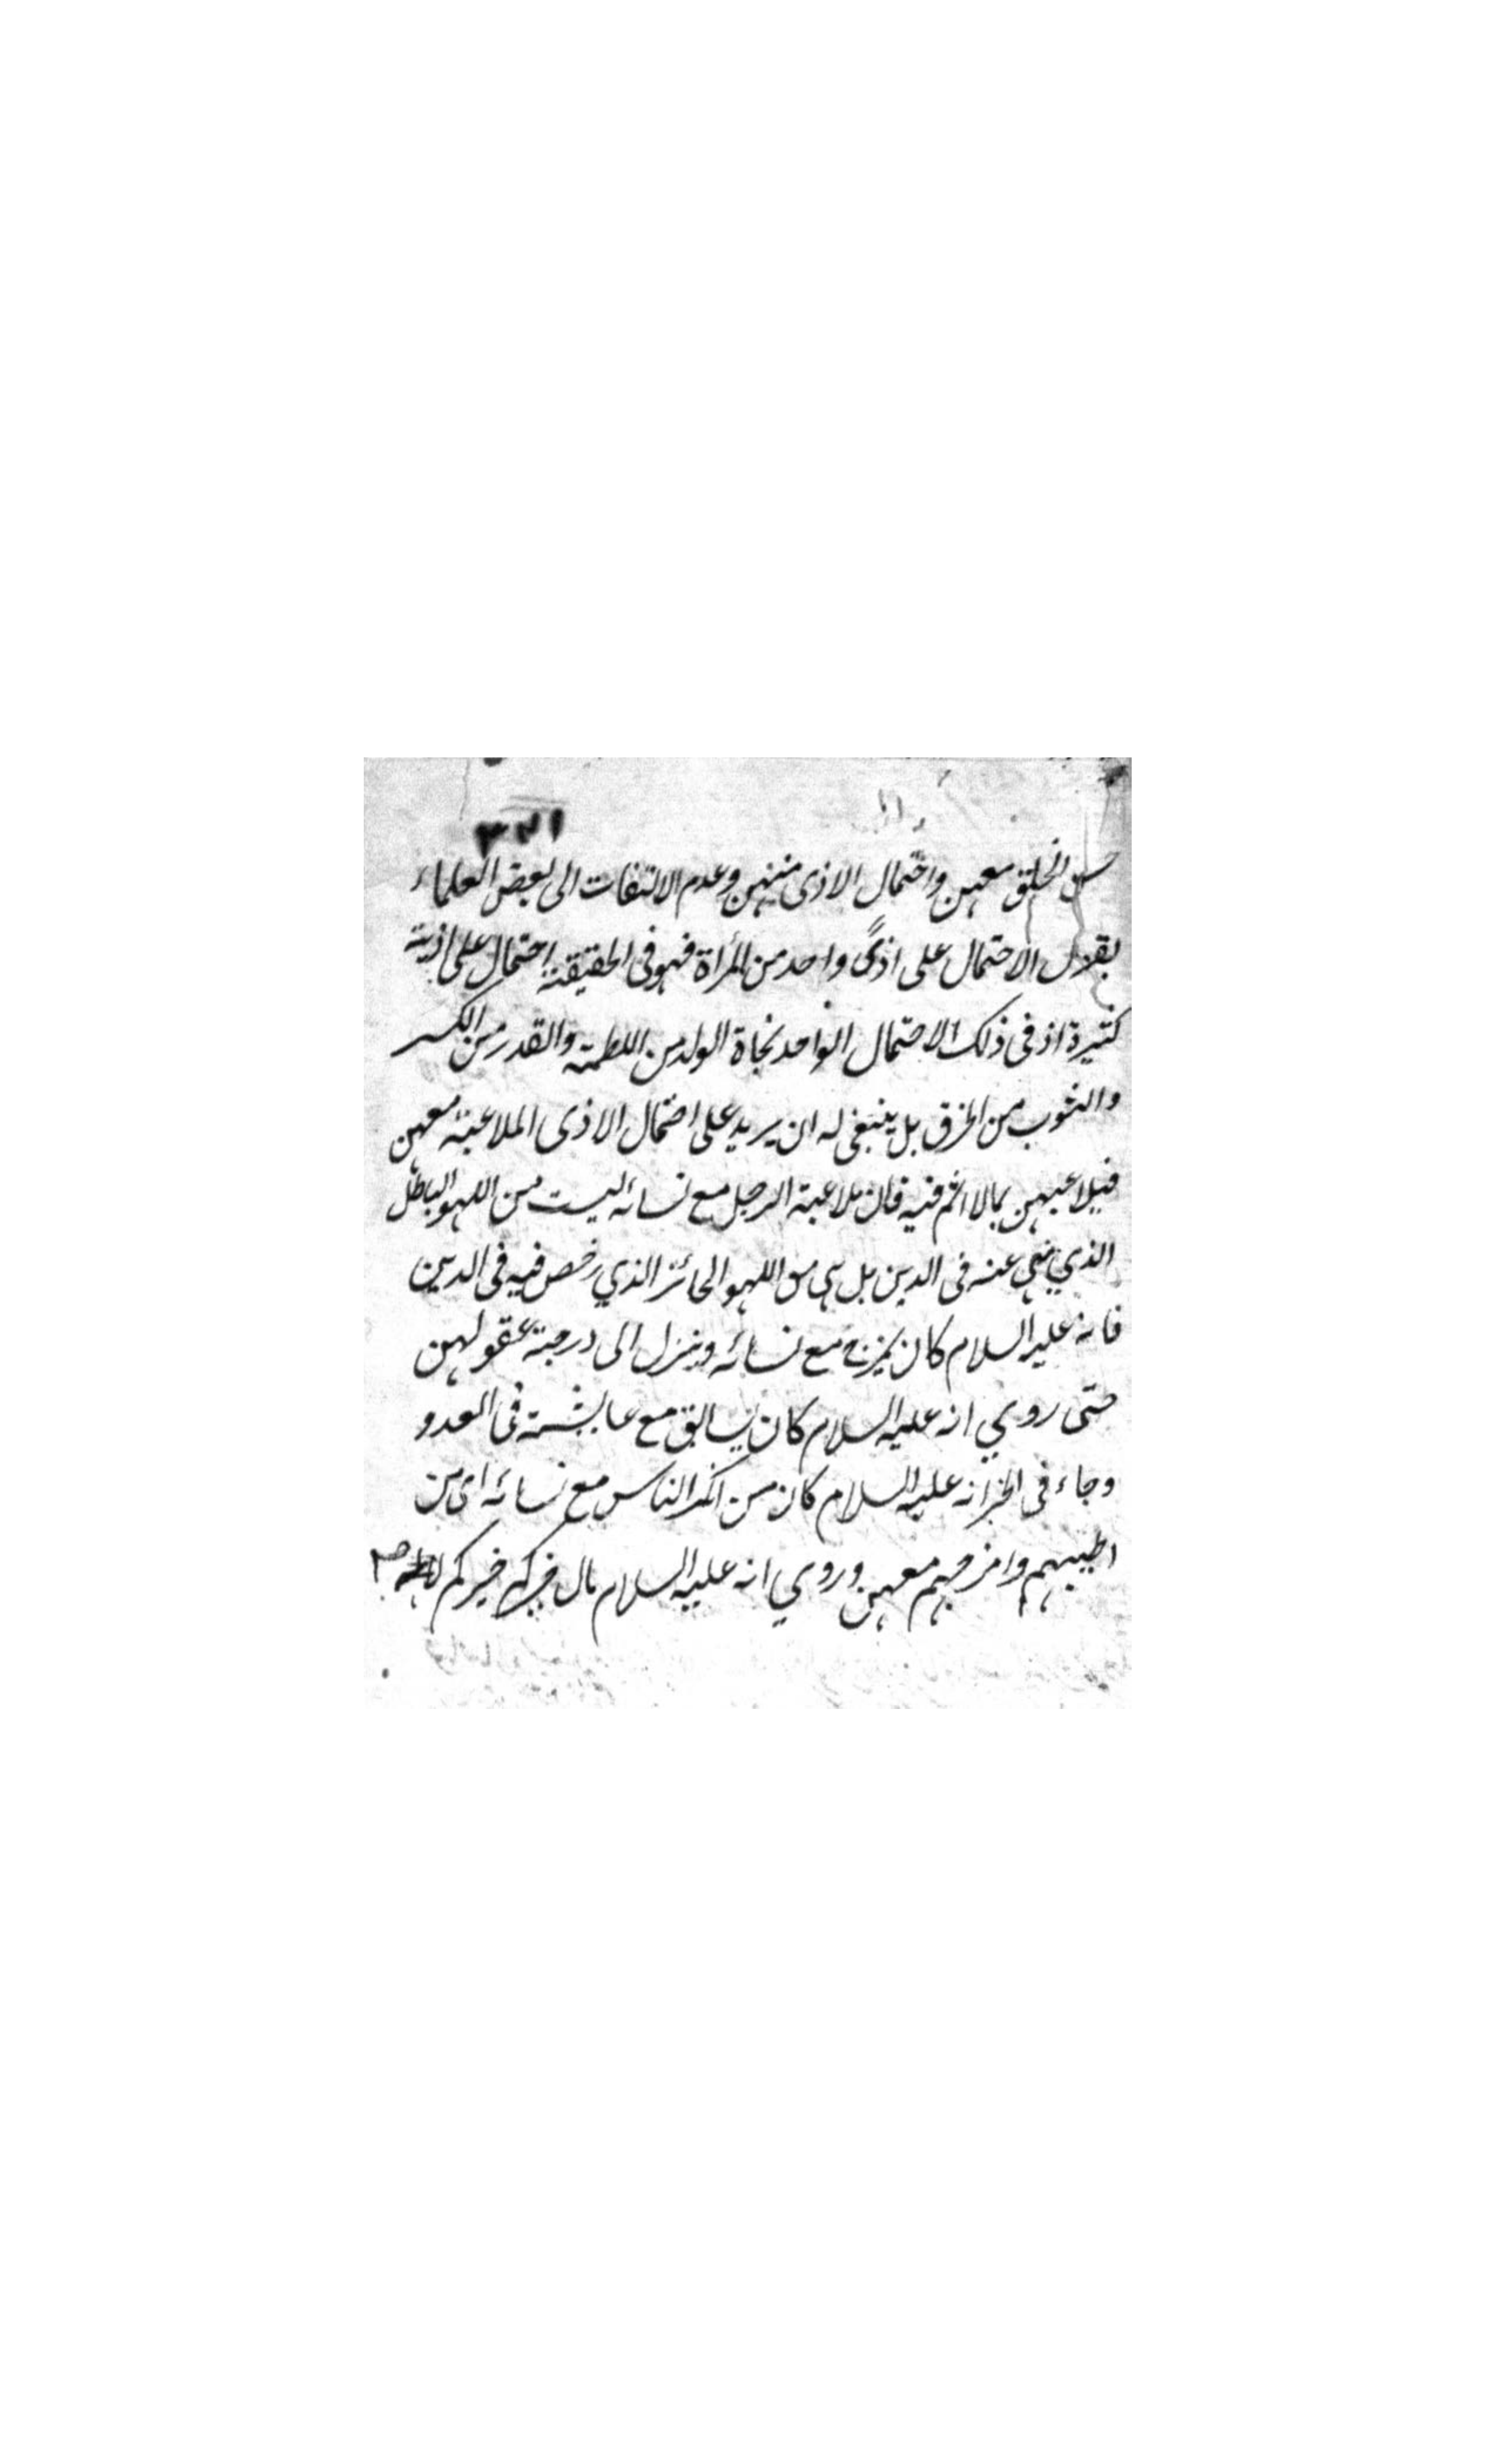 ٣٣١
حسن الخلق معهن واحتمال الاذى منهن وعدم الالتفات الى بعض العلماء
يقول الاحتمال على اذًى واحد من المرأة فهو فى الحقيقة احتمال على اذية
كثيرة اذ فى ذلك الاحتمال الواحد نجاة الولد من اللطمة والقدر من الكسر
والثوب من الخرق بل ينبغى له ان يريد على احتمال الاذى الملاعبة معهن
فيلاعبهن بما لا اثم فيه فان ملاعبة الرجل مع نسائه ليست من اللهو الباطل
الذي نهى عنه فى الدين بل هى من اللهو الجائز الذي رخص فيه فى الدين
فانه عليه السلام كان يمزح مع نسائه وينزل الى درجة عقولهن
حتى روي انه عليه السلام كان يسابق مع عايشة فى العدو
وجاء فى الخبر انه عليه السلام كان من افكه الناس مع نسائه اى من
اطيبهم وامزحهم معهن وروي انه عليه السلام قال خيركم خيركم